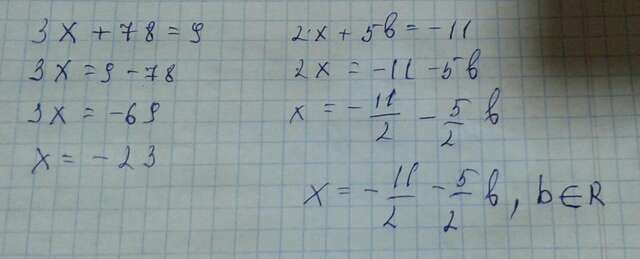 3x + 78 = 9
3x = 9 - 78
3x = -69
x = -23
2x + 5b = -11
2x = -11 - 5b
x = -11/2 - 5/2 b
x = -11/2 - 5/2 b, b∈R